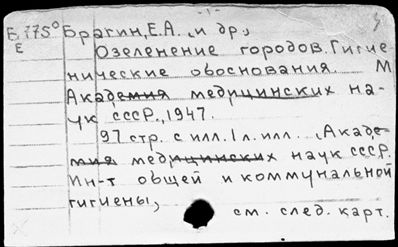 - 1 -
Е 775⁰ Брагин, Е.А. и др.,
Е
Озеленение городов. Гигие-
нические обоснования. М
Академия медицинских на-
ук СССР., 1947.
97 стр. с илл. 1 л. илл. . Акаде-
мия медицинских наук СССР.
Ин-т общей и коммунальной
гигиены,
см. след. карт.